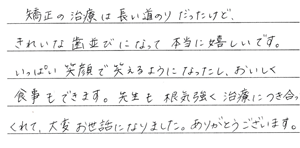 矯正の治療は長い道のりだったけど、
きれいな歯並びになって本当に嬉しいです。
いっぱい笑顔で笑えるようになったし、おいしく
食事もできます。先生も根気強く治療につき合っ
くれて、大変お世話になりました。ありがとうございます。